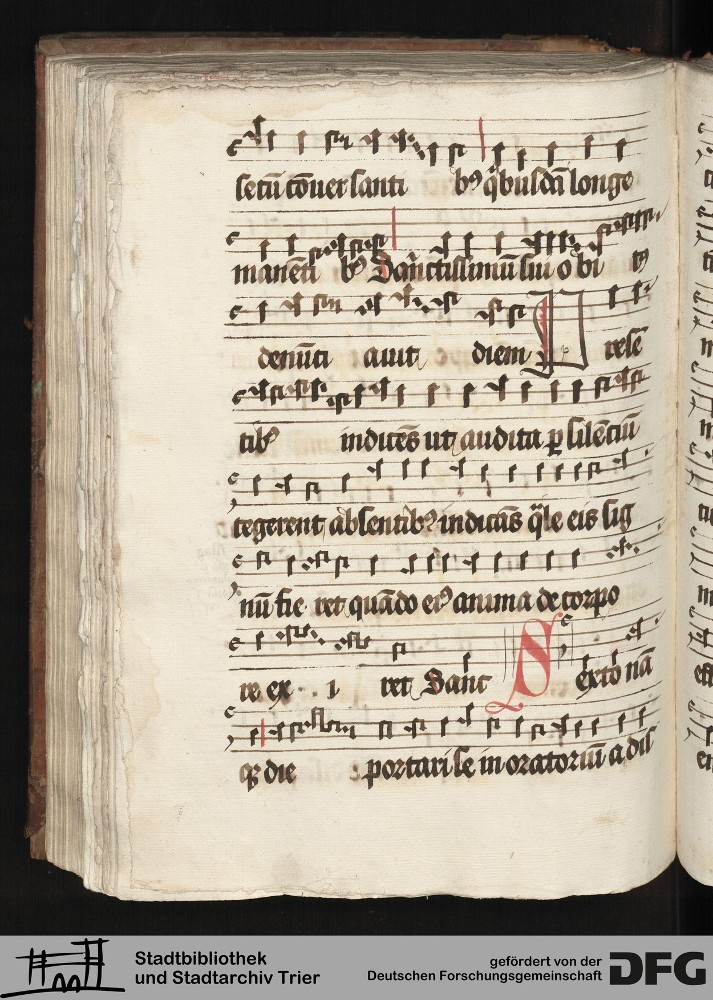 secū cōuersanti bꝰ q̄busdā longe
manēti bꝰ Sanctissimū sui o bi tꝰ
denūti auit diem P resē
tibꝰ indicēs ut audita ꝑ silētiū
tegerent absentibꝰ indicās q̄le eis sig
nū fie ret quādo eiꝰ anima de corpo
re ex i ret Sanc S exto nā
qꝫ die portari se in oratoriū a dis
Stadtbibliothek
und Stadtarchiv Trier
gefördert von der
Deutschen Forschungsgemeinschaft
DFG